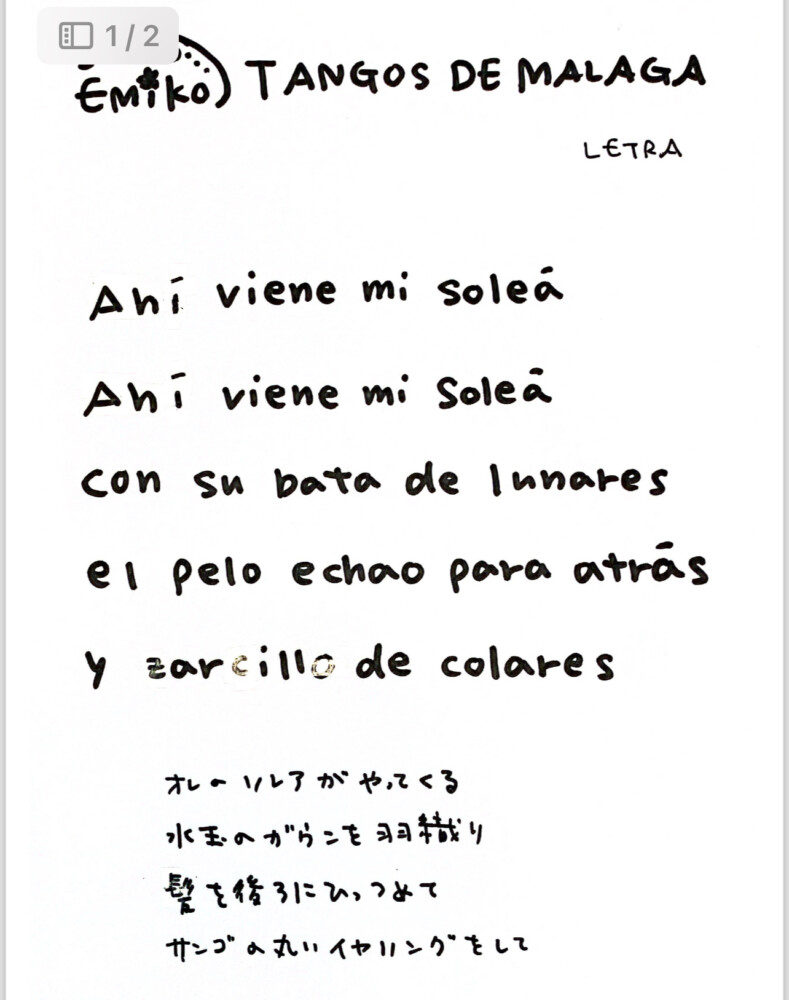 1/2
Emiko TANGOS DE MALAGA
LETRA
Ahí viene mi soleá
Ahí viene mi Soleá
con su bata de lunares
el pelo echao para atrás
y zarcillo de colares
オレのソレアがやってくる
水玉のがらこを羽織り
髪を後ろにひっつめて
サンゴの丸いイヤリングをして